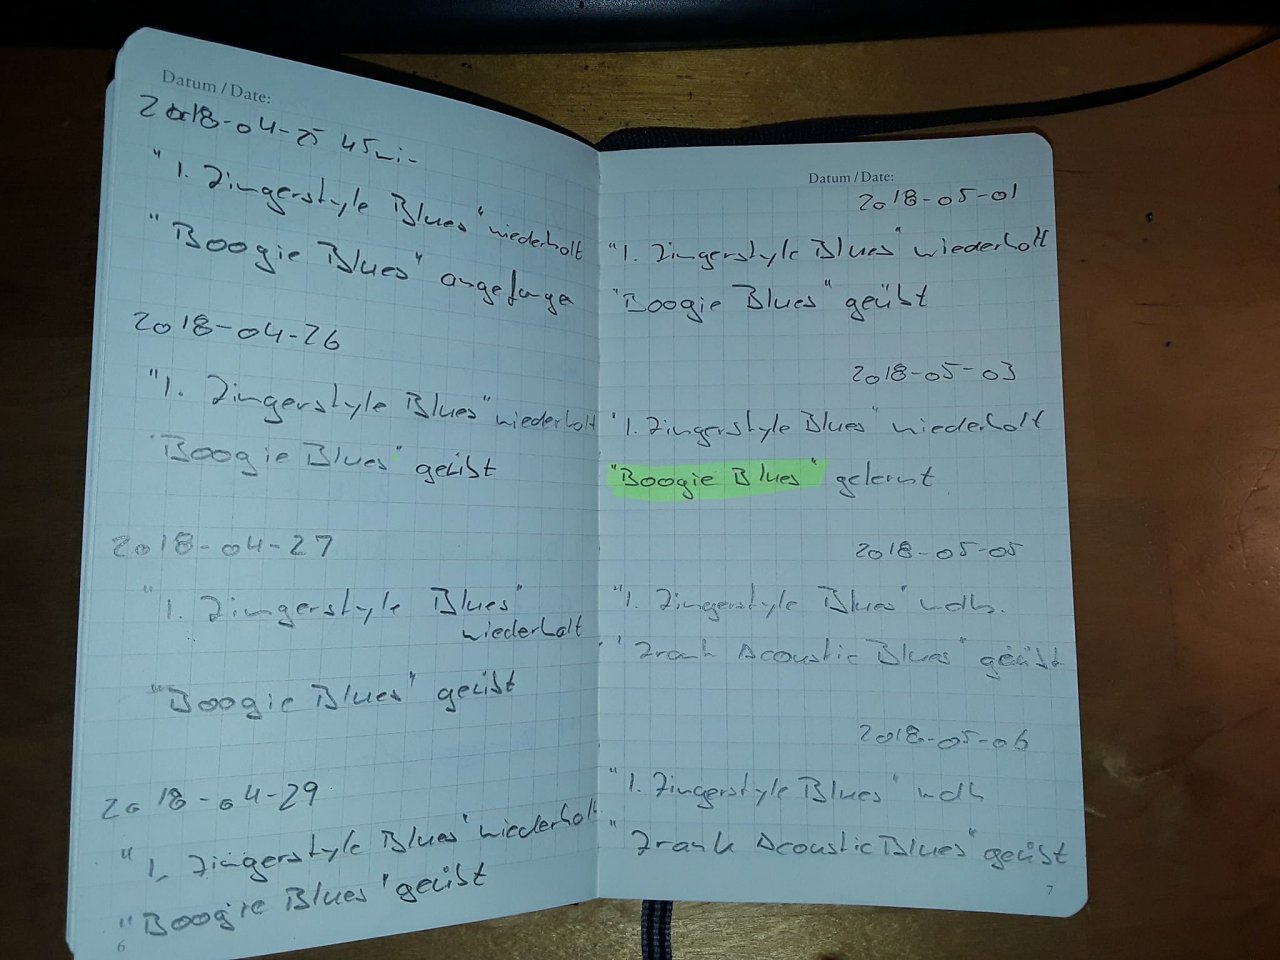 Datum / Date:
2018-04-25 45min
"1. Fingerstyle Blues" wiederholt
"Boogie Blues" angefange
2018-04-26
"1. Fingerstyle Blues" wiederholt
"Boogie Blues" geübt
2018-04-27
"1. Fingerstyle Blues"
wiederholt
"Boogie Blues" geübt
2018-04-29
"1. Fingerstyle Blues" wiederholt
"Boogie Blues" geübt
6
Datum / Date:
2018-05-01
"1. Fingerstyle Blues" wiederholt
"Boogie Blues" geübt
2018-05-03
"1. Fingerstyle Blues" wiederholt
"Boogie Blues" gelernt
2018-05-05
"1. Fingerstyle Blues" wdh.
"Frank Acoustic Blues" geübt
2018-05-06
"1. Fingerstyle Blues" wdh
"Frank Acoustic Blues" geübt
7